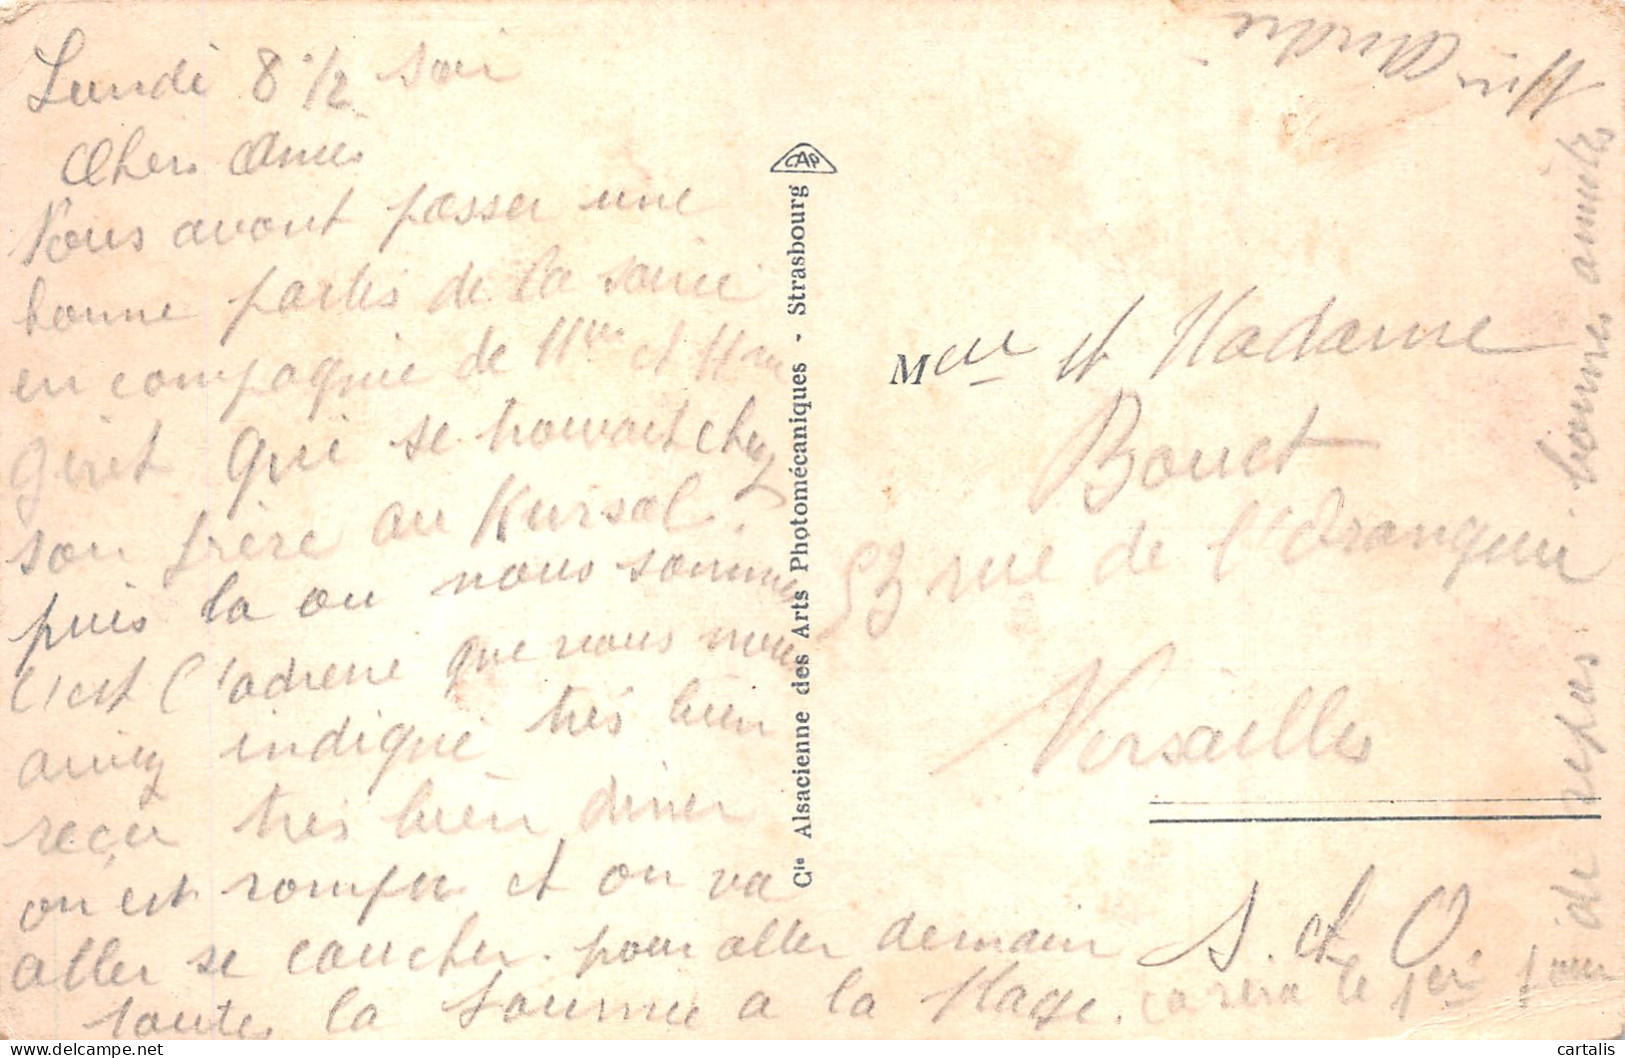 Lundi 8 1/2 soir
Chers Amis
Nous avont passer une
bonne partis de la soirée
en compagnie de Mme et Mme
Giret qui se trouvait chez
son frère au Kursal.
puis la ou nous somme
c'est l'adresse que nous
aviez indiqué très bien
reçu très bien diner
on est rompu et on va
aller se coucher. pour aller demain
toutes la journee a la Plage.
ca sera le 1er jour
de repas. bonnes amitiés
André
CAP
Cie Alsacienne des Arts Photomécaniques - Strasbourg
M et Madame
Bouet
53 rue de l'Orangerie
Versailles
S. et O.
cartalis